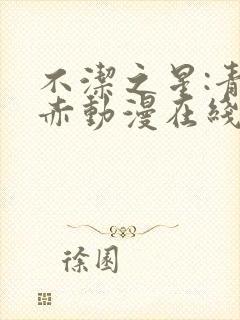 不潔之星:青
赤動漫在綫
徐園